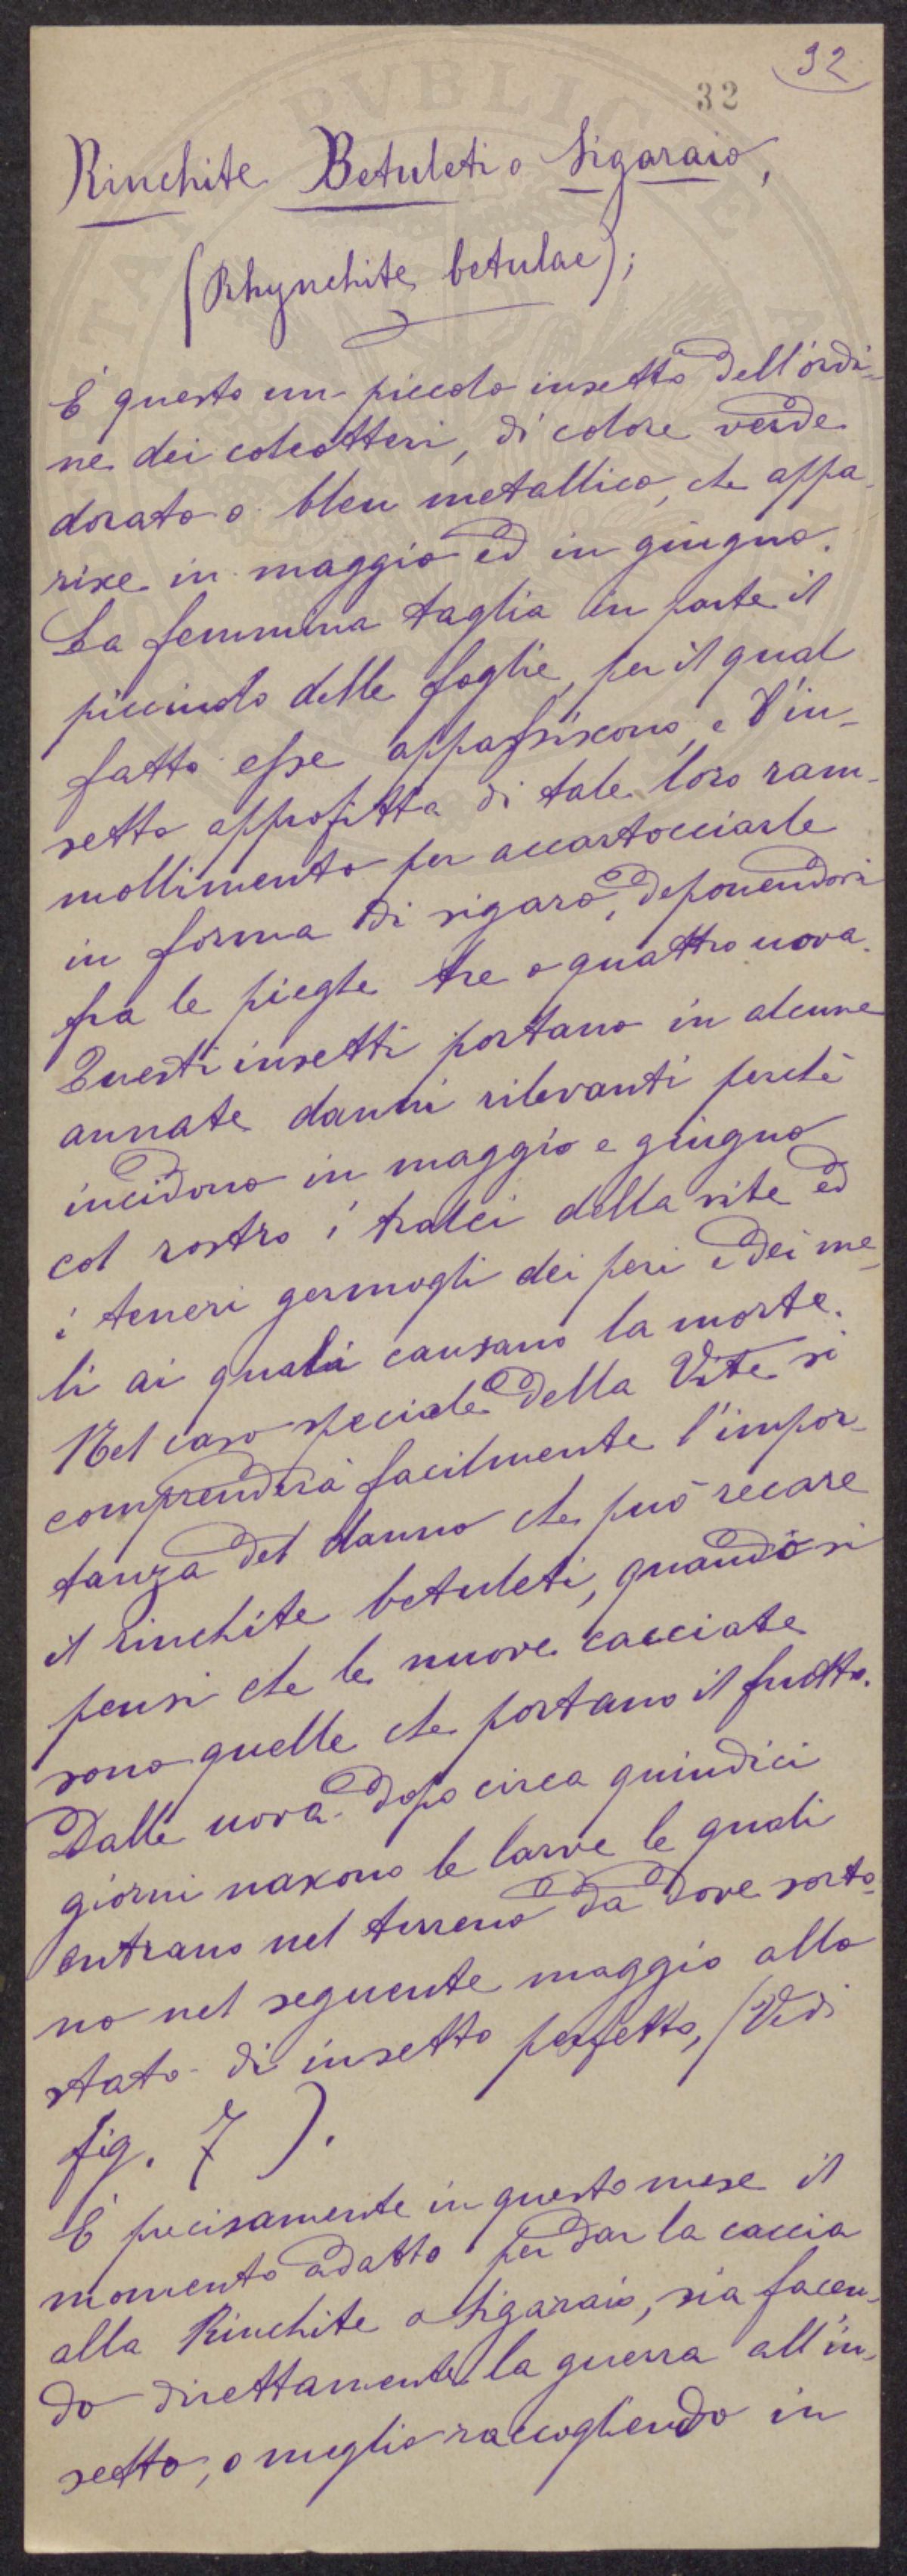 92
32
Rinchite Betuleti o Sigaraio,
(Rhynchite betulae);
E' questo un piccolo insetto dell'ordi-
ne dei coleotteri, di colore verde
dorato o bleu metallico, che appa-
risce in maggio ed in giugno.
La femmina taglia in parte il
picciuolo delle foglie, per il qual
fatto esse appassiscono, e l'in-
setto approfitta di tale loro ram-
mollimento per accartocciarle
in forma di sigaro, deponendovi
fra le pieghe tre o quattro uova.
Questi insetti portano in alcune
annate danni rilevanti perchè
incidono in maggio e giugno
col rostro i tralci della vite ed
i teneri germogli dei peri e dei me-
li ai quali causano la morte.
Nel caso speciale della Vite si
comprenderà facilmente l'impor-
tanza del danno che può recare
il rinchite betuleti, quando si
pensi che le nuove cacciate
sono quelle che portano il frutto.
Dalle uova dopo circa quindici
giorni nascono le larve le quali
entrano nel terreno da dove sorto-
no nel seguente maggio allo
stato di insetto perfetto, (Vedi
fig. 7 ).
E' precisamente in questo mese il
momento adatto per dar la caccia
alla Rinchite o Sigaraio, sia facen-
do direttamente la guerra all'in-
setto, o meglio raccogliendo in